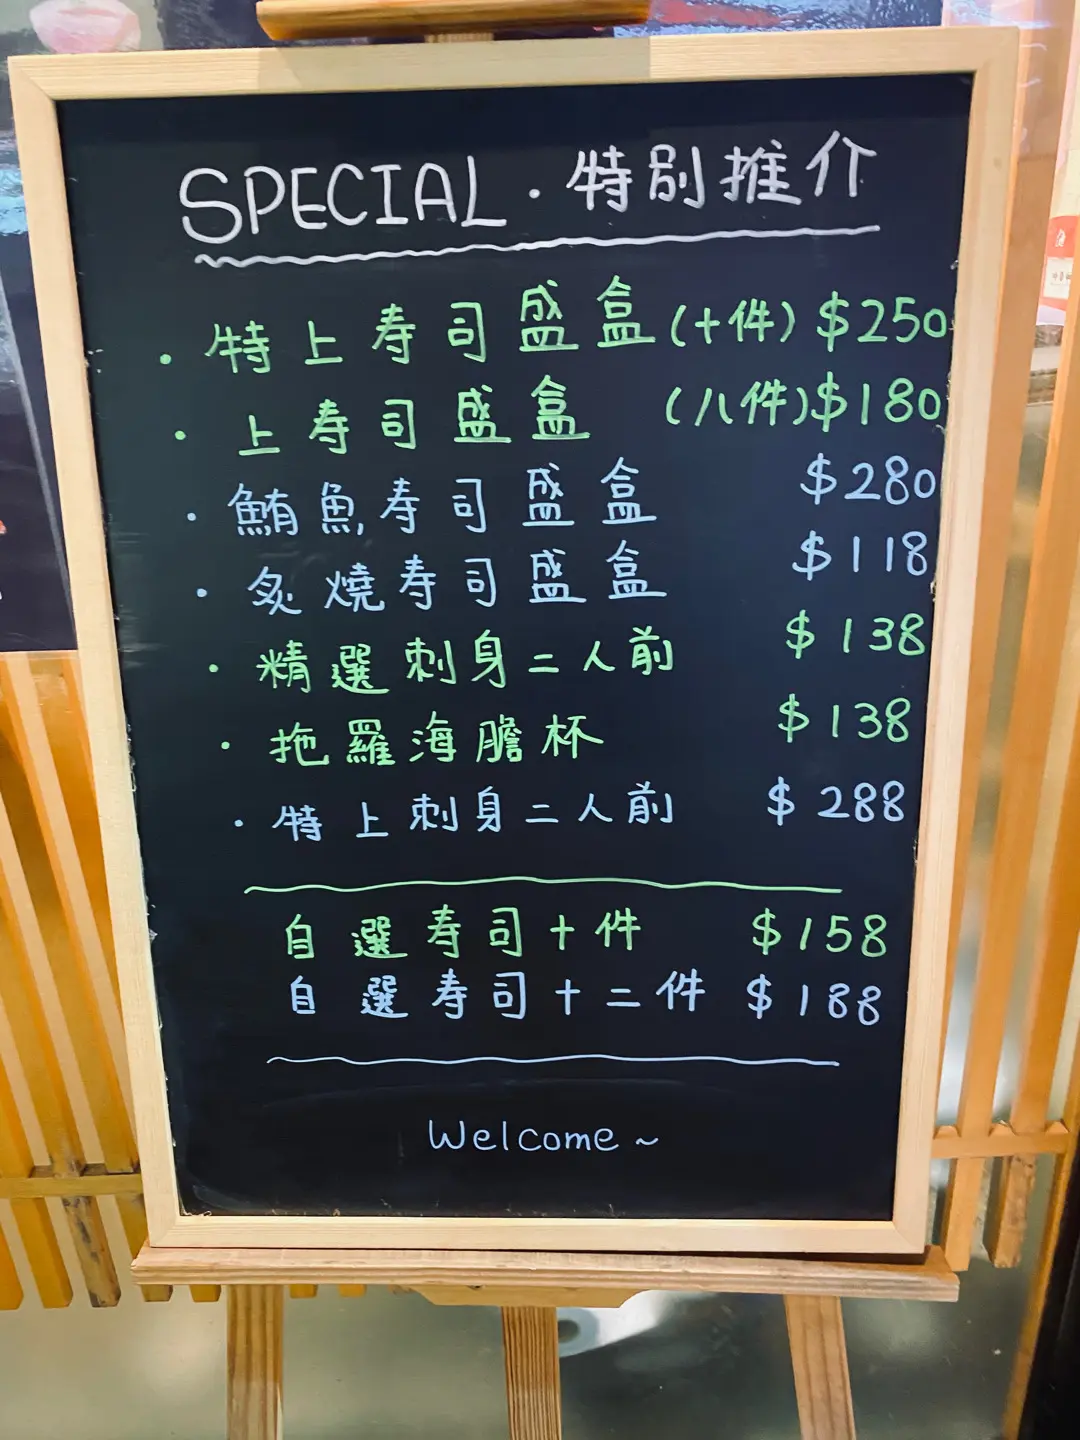 SPECIAL · 特別推介
· 特上寿司盛盒(十件) $250
· 上寿司盛盒 (八件) $180
· 鮪魚寿司盛盒 $280
· 炙燒寿司盛盒 $118
· 精選刺身二人前 $138
· 拖羅海膽杯 $138
· 特上刺身二人前 $288
自選寿司十件 $158
自選寿司十二件 $188
Welcome ~